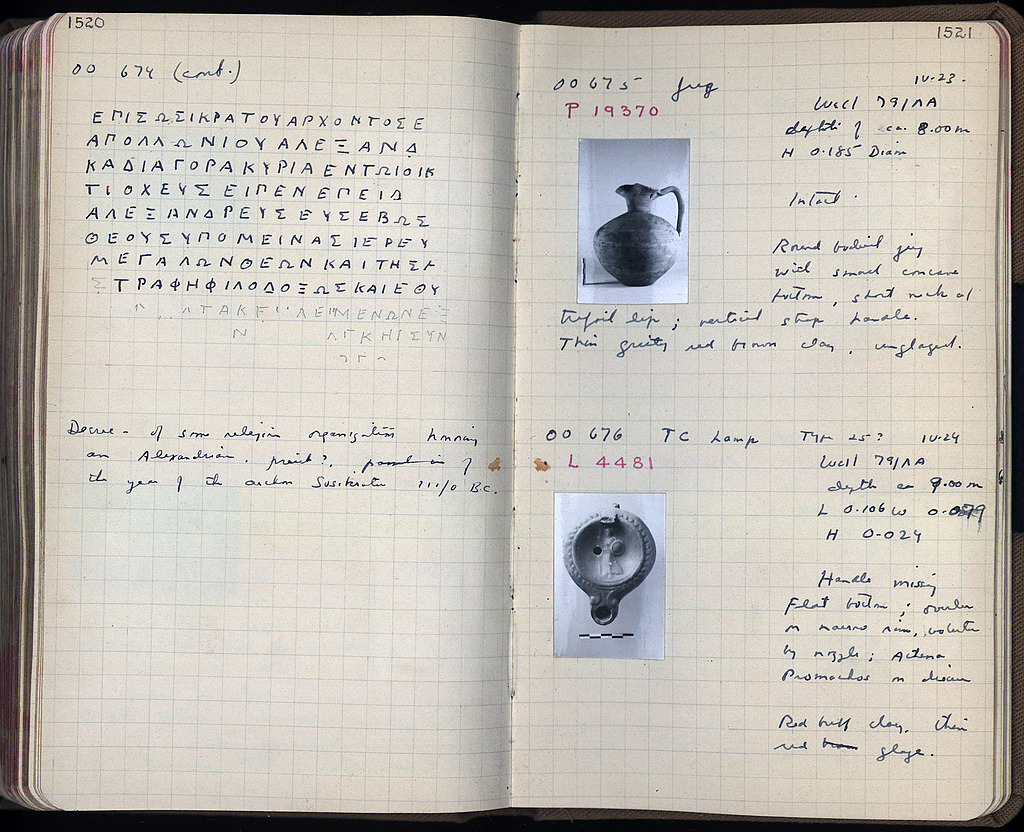 1520
OO 674 (cont.)
ΕΠΙΣΩΣΙΚΡΑΤΟΥΑΡΧΟΝΤΟΣΕ
ΑΠΟΛΛΩΝΙΟΥΑΛΕΞΑΝΔ
ΚΑΔΙΑΓΟΡΑΚΥΡΙΑΕΝΤΩΙΟΙΚ
ΤΙΟΧΕΥΣΕΙΠΕΝΕΠΕΙΔ
ΑΛΕΞΑΝΔΡΕΥΣΕΥΣΕΒΩΣ
ΘΕΟΥΣΥΠΟΜΕΙΝΑΣΙΕΡΕΥ
ΜΕΓΑΛΩΝΘΕΩΝΚΑΙΤΗΣ
ΣΤΡΑΦΗΦΙΛΟΔΟΞΩΣΚΑΙΕΘΥ
Decree – of some religious organization honoring
an Alexandrian, priest?, of
the year of the archon Sosikrates 111/0 BC.
1521
OO 675 Jug
IV.23.
P 19370
Well 79/ΛΑ
depth of ca. 8.00 m
H 0.185 Diam
Intact.
Round bodied jug
with small concave
bottom, short neck and
trefoil lip; vertical strap handle.
Thin gritty red brown clay, unglazed.
OO 676 TC Lamp Type 25? IV.24
L 4481
Well 79/ΛΑ
depth ca 9.00 m
L 0.106 W 0.079
H 0.024
Handle missing
Flat bottom; ovules
on narrow rim, volutes
by nozzle; Athena
Promachos on discus
Red buff clay, thin
red glaze.